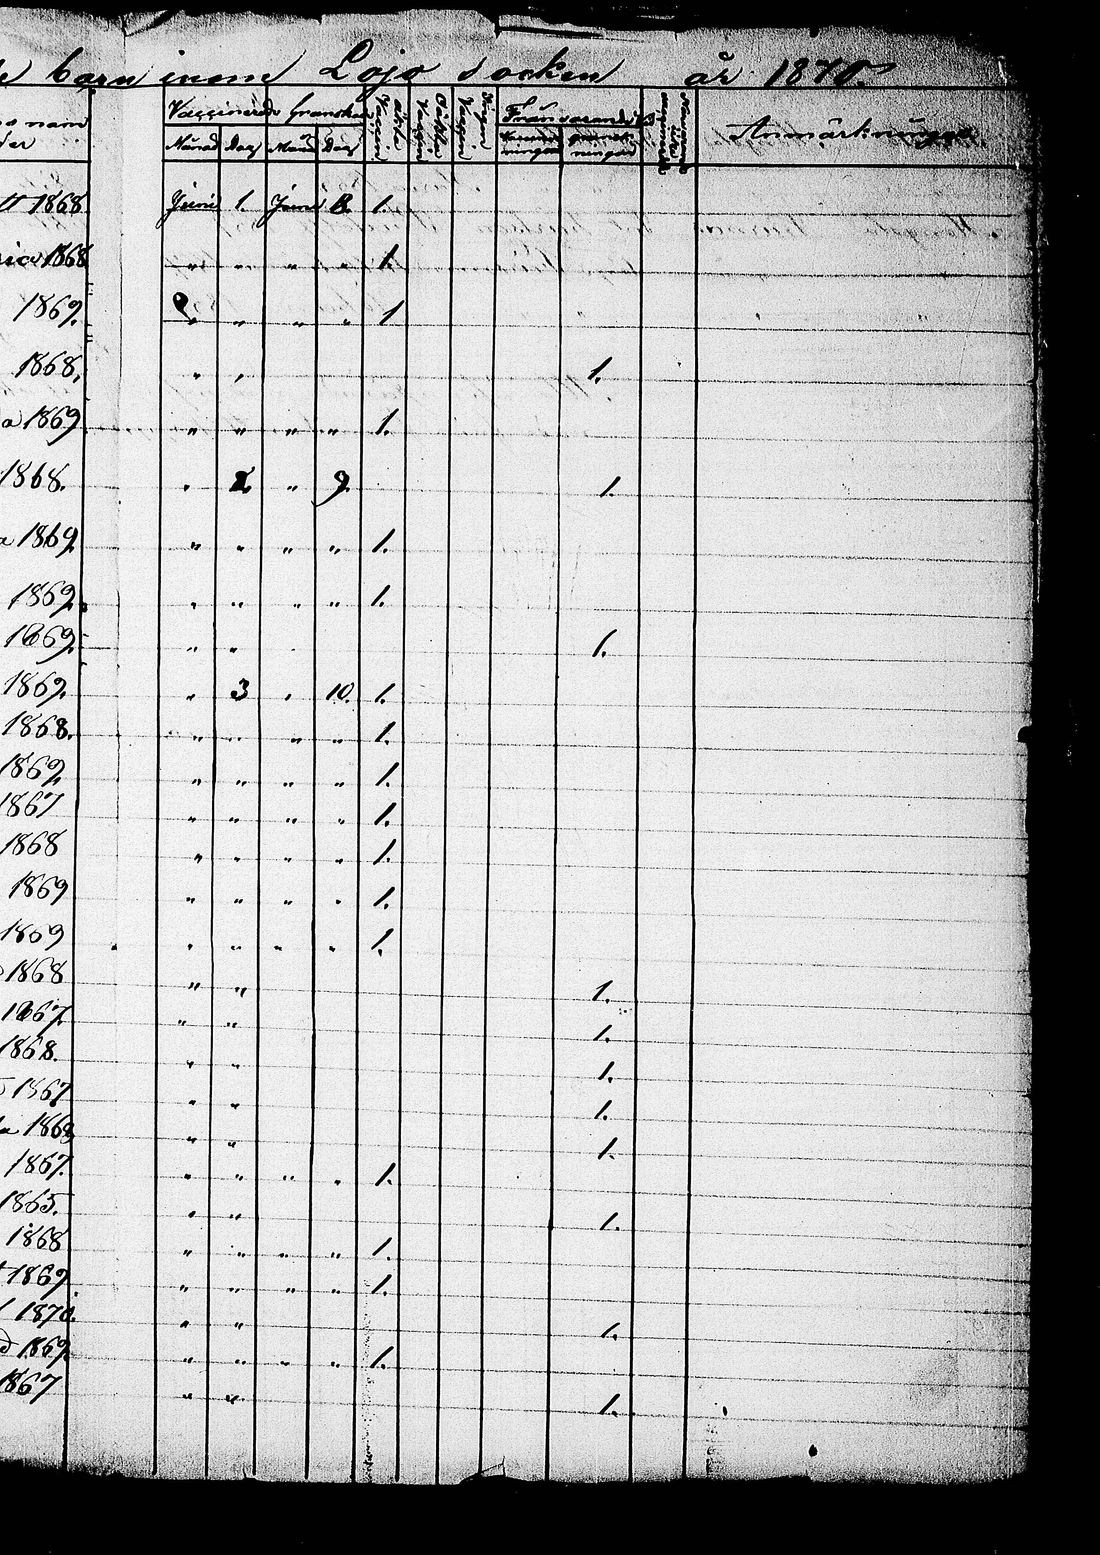 barn inom Lojo Socken år 1870.
Vaccinerade Granskade Frånvarande Anmärkningar.
Månad Dag Månad Dag
1868 Juni 1. Juni 8. 1.
1868 " " " " 1.
1869. " " " " 1
1868. " " 1.
a 1869 " " " " 1.
1868. " 2 " 9. 1.
a 1869. " " " " 1.
1869. " " " " 1.
1869. " " 1.
1869. " 3 " 10. 1.
1868. " " " " 1.
1869. " " " " 1.
1867 " " " " 1.
1868 " " " " 1.
1869 " " " " 1.
1869 " " " " 1.
1868 " " 1.
1867. " " 1.
1868. " " 1.
1867 " " 1.
a 1869 " " 1.
1867. " " " " 1.
1865. " " 1.
1868 " " " " 1.
1869 " " " " 1.
1870. " " 1.
d 1869. " " " " 1.
1867 " " 1.